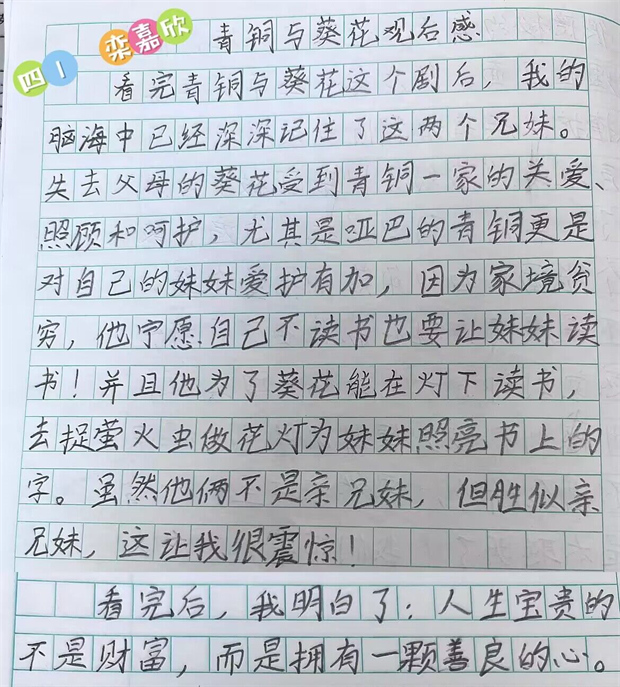 四1 栾嘉欣 青铜与葵花观后感
看完青铜与葵花这个剧后，我的
脑海中已经深深记住了这两个兄妹。
失去父母的葵花受到青铜一家的关爱、
照顾和呵护，尤其是哑巴的青铜更是
对自己的妹妹爱护有加，因为家境贫
穷，他宁愿自己不读书也要让妹妹读
书！并且他为了葵花能在灯下读书，
去捉萤火虫做花灯为妹妹照亮书上的
字。虽然他俩不是亲兄妹，但胜似亲
兄妹，这让我很震惊！
看完后，我明白了：人生宝贵的
不是财富，而是拥有一颗善良的心。